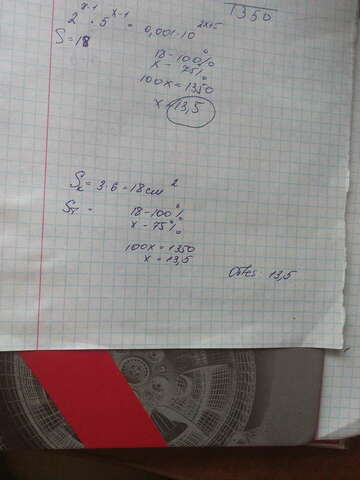 1350
2^{x-1} · 5^{x-1} = 0,001 · 10^{2x+5}
S = 18
18 - 100%
x - 75%
100x = 1350
x = 13,5
Sк = 3·6 = 18 cm²
Sт - 18 - 100%
x - 75%
100x = 1350
x = 13,5
Ответ 13,5